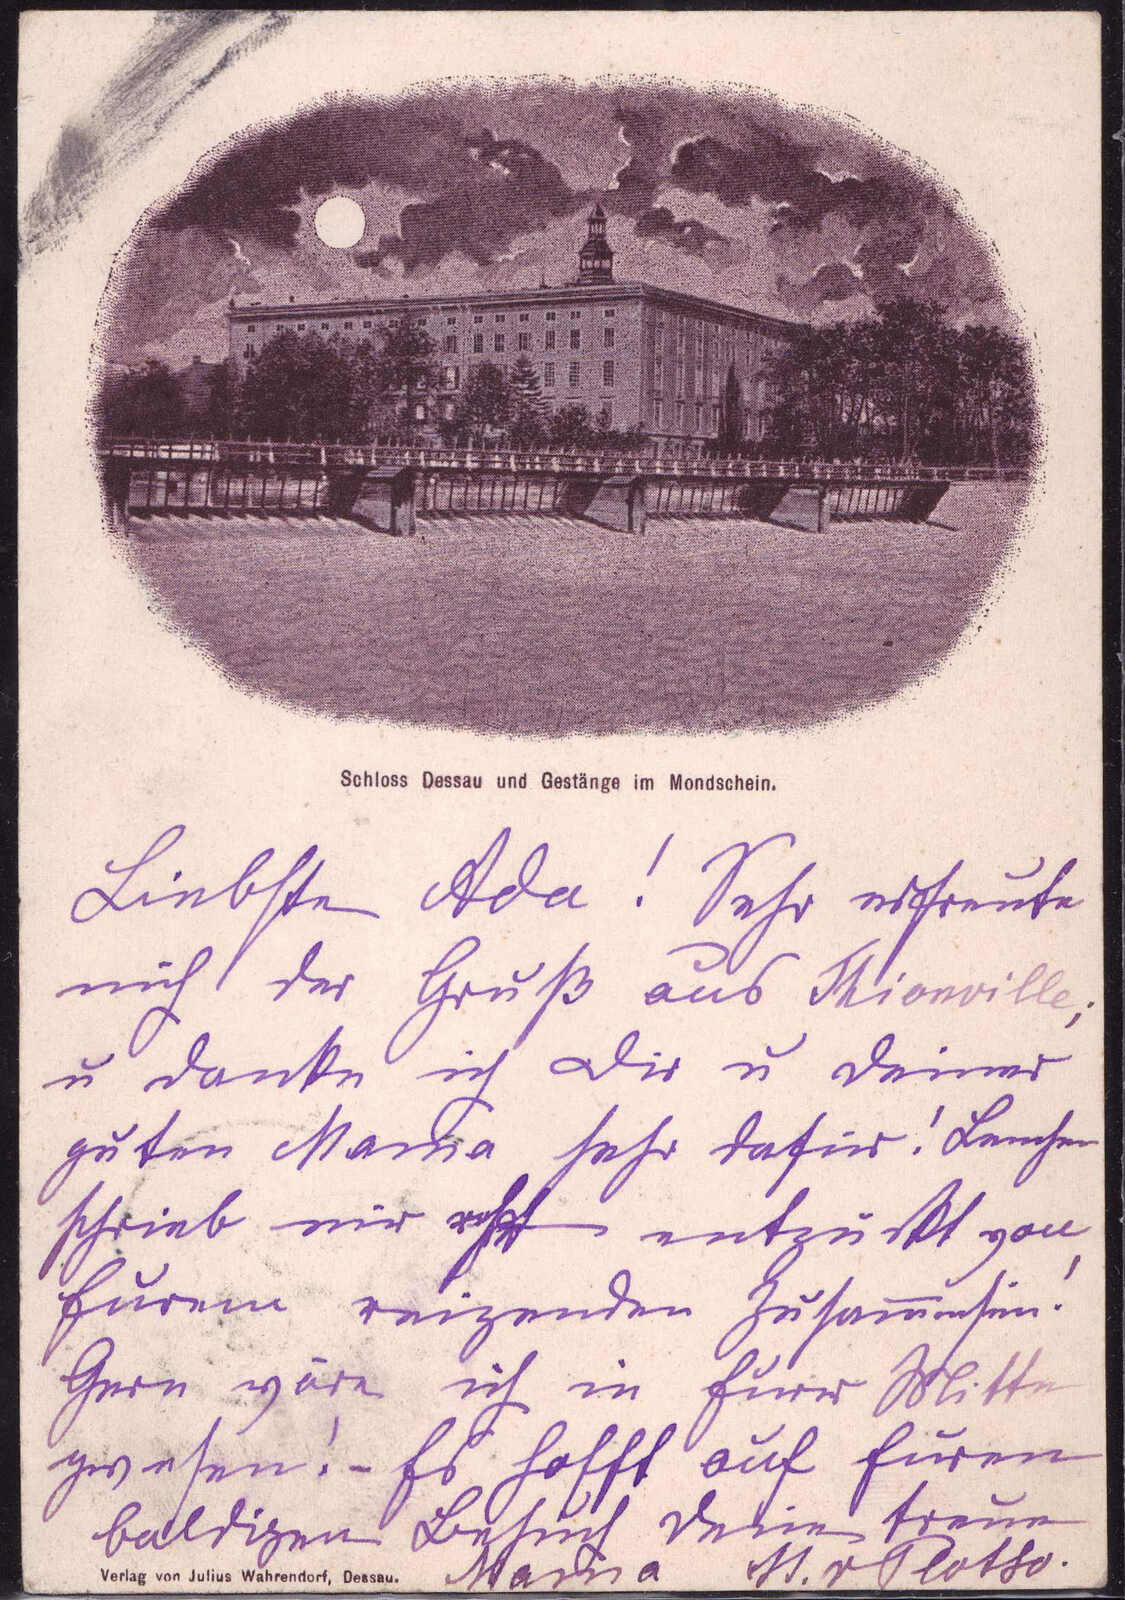 Schloss Dessau und Gestänge im Mondschein.
Liebste Ada! Sehr erfreute
mich der Gruß aus Thionville,
u danke ich Dir u Deiner
guten Mama sehr dafür! Lenchen
schrieb mir entzückt von
Eurem reizenden Zusammensein!
Gern wäre ich in Eurer Mitte
gewesen! - Es hofft auf Euren
baldigen Besuch Deine treue
Verlag von Julius Wahrendorf, Dessau.
M. v Plotho.